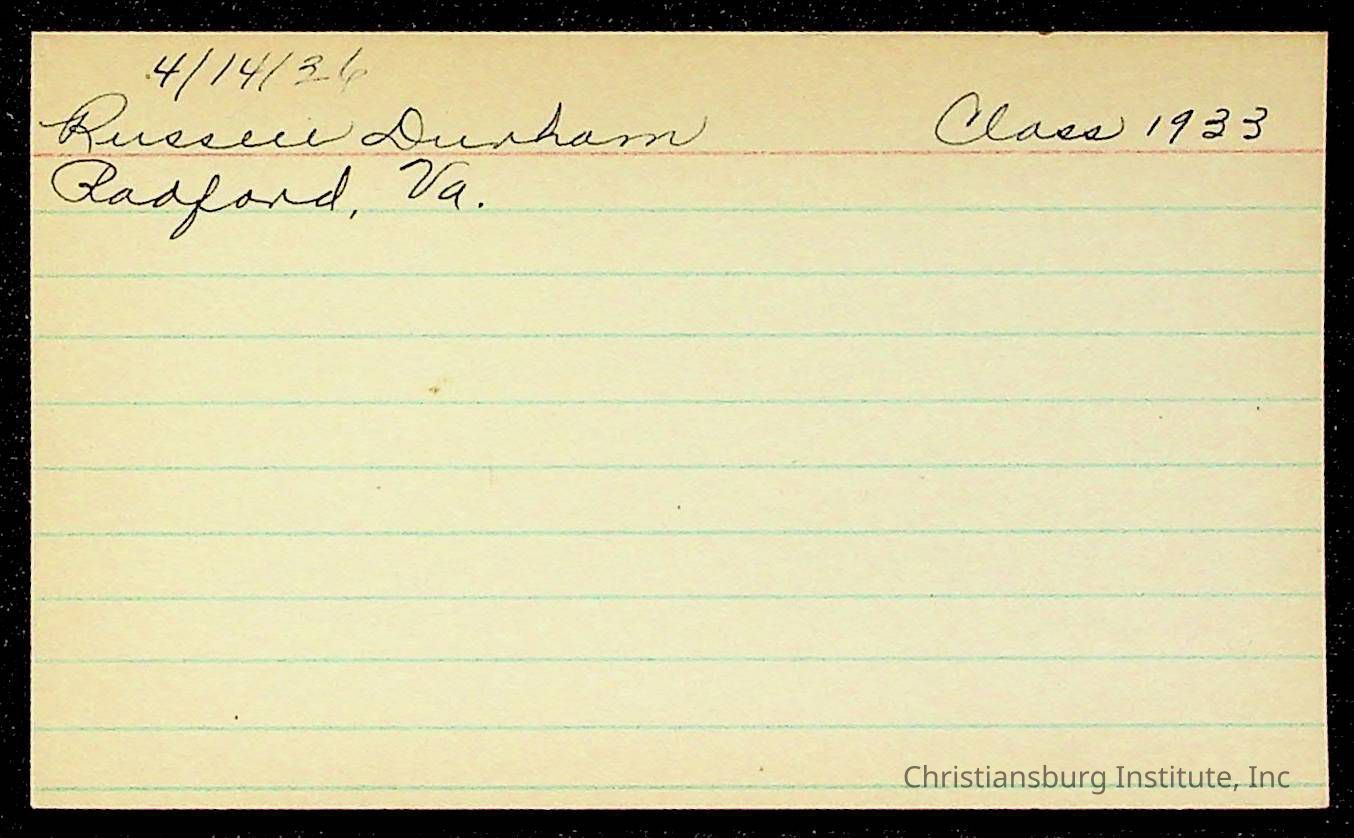 4/14/36
Russell Durham Class 1933
Radford, Va.
Christiansburg Institute, Inc